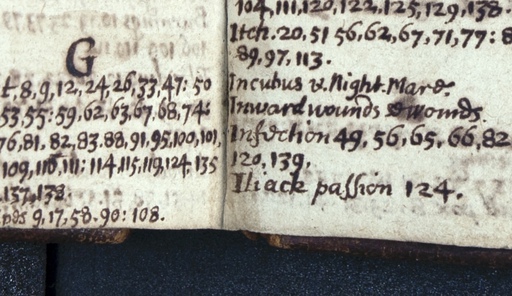 G
t, 8, 9, 12, 24, 26, 33, 47: 50
53, 55: 59, 62, 63, 67, 68, 74:
76, 81, 82, 83, 88, 91, 95, 100, 101,
109, 110, 111: 114, 115, 119, 124, 135
, 137, 138
9, 17, 58. 90: 108.
104, 111, 120, 122, 125, 129, 138.
Itch. 20, 51 56, 62, 67, 71, 77: 8
89, 97, 113.
Incubus v. Night. Mare.
Inward wounds
Infection 49, 56, 65, 66, 82
120, 139.
Iliack passion 124.